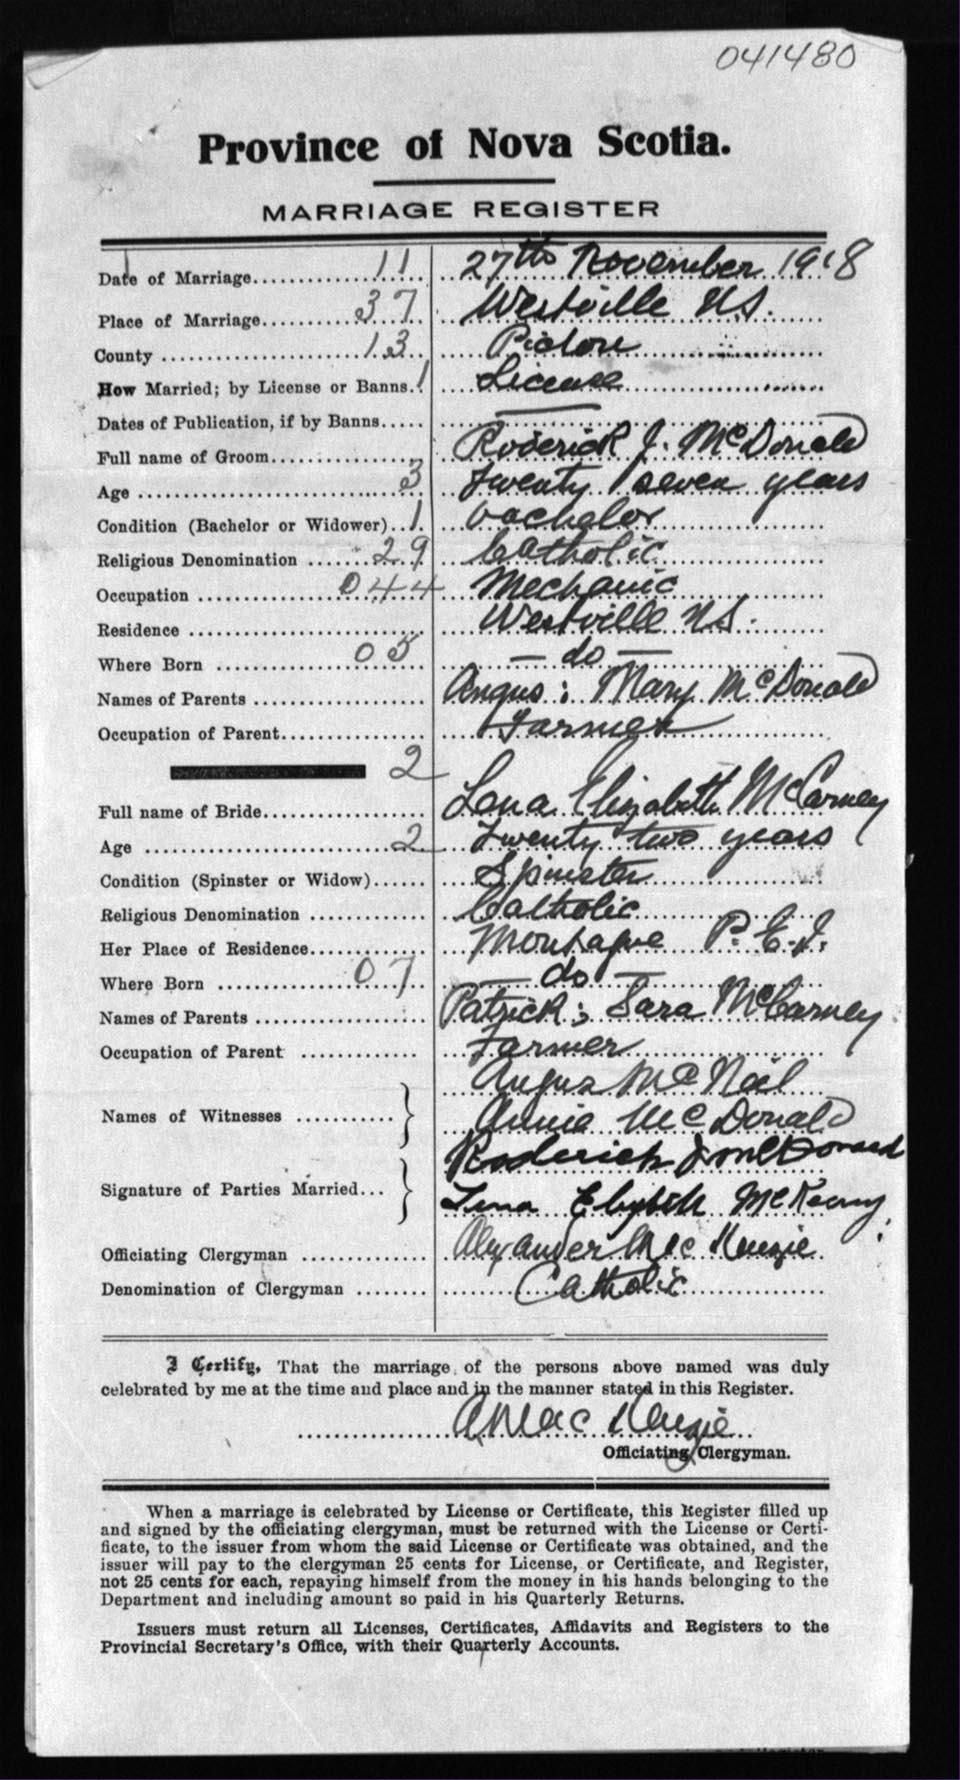 041480
Province of Nova Scotia.
MARRIAGE REGISTER
Date of Marriage 11 27th November 1918
Place of Marriage 37 Westville N.S.
County 13 Pictou
How Married; by License or Banns. 1 License
Dates of Publication, if by Banns —
Full name of Groom Roderick J. McDonald
Age 3 twenty seven years
Condition (Bachelor or Widower) 1 bachelor
Religious Denomination 29 Catholic
Occupation 044 Mechanic
Residence Westville N.S.
Where Born 05 — do —
Names of Parents Angus : Mary McDonald
Occupation of Parent Farmer
2
Full name of Bride Lena Elizabeth McCarney
Age 2 twenty two years
Condition (Spinster or Widow) Spinster
Religious Denomination Catholic
Her Place of Residence Montague P.E.I.
Where Born 07 — do —
Names of Parents Patrick ; Sara McCarney
Occupation of Parent Farmer
Names of Witnesses Angus McNeil
Annie McDonald
Signature of Parties Married Roderick J McDonald
Lena
Officiating Clergyman Alexander MacKenzie
Denomination of Clergyman Catholic
I Certify, That the marriage of the persons above named was duly
celebrated by me at the time and place and in the manner stated in this Register.
A MacKenzie
Officiating Clergyman.
When a marriage is celebrated by License or Certificate, this Register filled up
and signed by the officiating clergyman, must be returned with the License or Certi-
ficate, to the issuer from whom the said License or Certificate was obtained, and the
issuer will pay to the clergyman 25 cents for License, or Certificate, and Register,
not 25 cents for each, repaying himself from the money in his hands belonging to the
Department and including amount so paid in his Quarterly Returns.
Issuers must return all Licenses, Certificates, Affidavits and Registers to the
Provincial Secretary's Office, with their Quarterly Accounts.